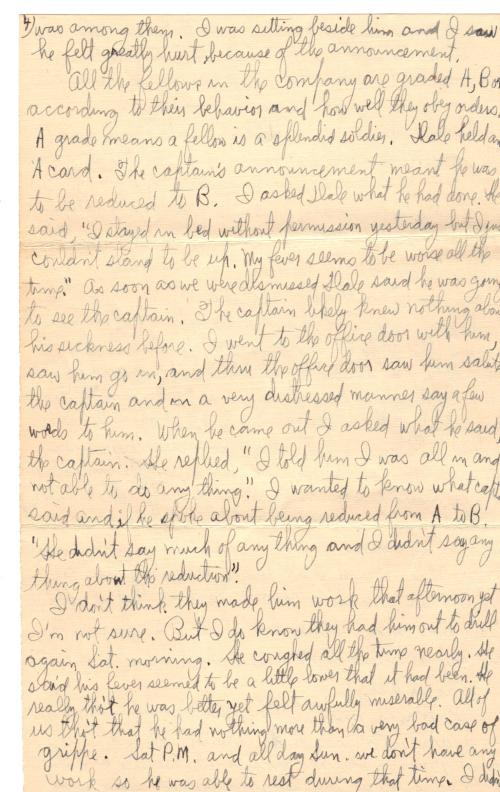 4) was among them. I was sitting beside him and I saw
he felt greatly hurt, because of the announcement.
All the fellows in the company are graded A, B or
according to their behavior and how well they obey orders.
A grade means a fellow is a splendid soldier. Hale held an
A card. The captain's announcement meant he was
to be reduced to B. I asked Hale what he had done. He
said, "I stayed in bed without permission yesterday but I jus
couldn't stand to be up. My fever seems to be worse all the
time." As soon as we were dismissed Hale said he was going
to see the captain. The captain likely knew nothing abou
his sickness before. I went to the office door with him,
saw him go in, and thru the office door saw him salute
the captain and in a very distressed manner say a few
words to him. When he came out I asked what he said
the captain. He replied, "I told him I was all in and
not able to do any thing." I wanted to know what capt
said and if he spoke about being reduced from A to B.
"He didn't say much of any thing and I didn't say any
thing about the reduction".
I don't think they made him work that afternoon yet
I'm not sure. But I do know they had him out to drill
again Sat. morning. He coughed all the time nearly. He
said his fever seemed to be a little lower that it had been. He
really tho't he was better yet felt awfully miserable. All of
us tho't that he had nothing more than a very bad case of
grippe. Sat P.M. and all day Sun. we don't have any
work so he was able to rest during that time. I didn